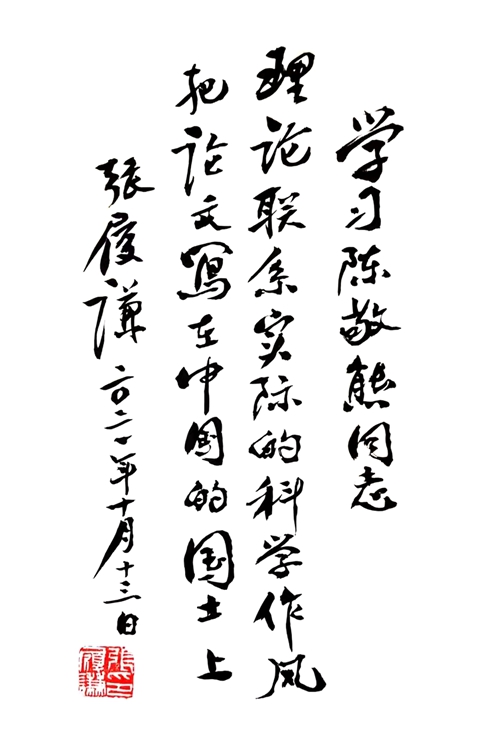 学习陈敬熊同志
理论联系实际的科学作风
把论文寫在中国的国土上
張履谦 二〇二一年十月十三日